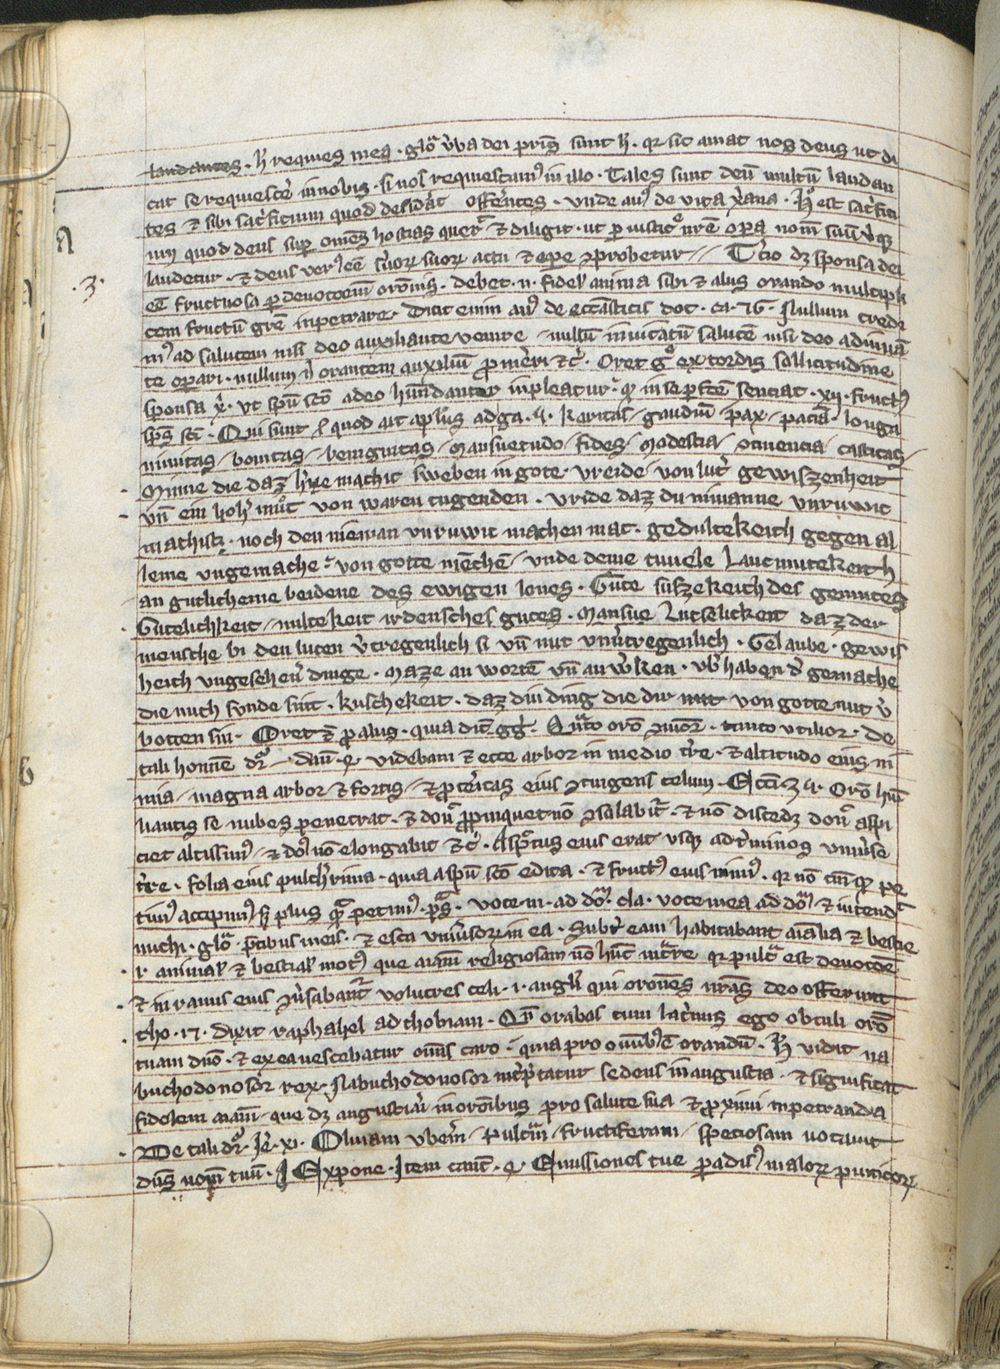 laudantes. h̄ requies mea. glō v̓ba dei p̄ris sunt h̄. qr sic amat nos deus ut di
cat se requiesce̓ in nobis. si nos requiescam᷒ in illo. Tales sunt deū multū laudan
tes ⁊ sibi sac̓ficium quod desid̓at offe̓ntes. unde au᷒ de vita x̓iana. H° est sac̓fici
um quod deus sup̄ om̄es hostias querit̓ ⁊ diligit. ut per iustic̓ nr̄e op̓a nom̄ suū
laudetur. ⁊ deus ver᷒ eē suor̄ actu ⁊ op̄e ꝯprobetur. T̓cio dꝫ sponsa dei
eē fructuosa p̄ deuotōem orōnis. debet .n. fidel̓ anima sibi ⁊ aliis orando multipli
cem fructū gr̄e inpetrare. Dicit enim au᷒ de eccl̓asticis dot. ca. Nullum credi
m᷒ ad salutem nisi deo auxiliante venire. nullū inuitatū salutē nisi deo adiuuā
te op̄ari. nullum orantem auxiliū prome̓ri ⁊c̓. Oret g° ex cordis sollicitudine
sponsa x̓. vt sp̄u sc̄o adeo habundanter inpleatur. qd in se p̄fcē sentiat. xii. fruct᷒
sp̄s sc̄i. Qui sunt quod ait ap̄lus ad ga. 4. karitas / gaudiū / pax / paciā. longa
nimitas / bonitas / benignitas / mansuetudo / fides / modestia / ꝯtinencia / castitas /
Minne die daz h̓ze machit sweben in gote. vreide von lut̓ gewiszenheit
vn̄ ein hoh̓ mut von waren tugenden. vride daz du niman ne vnruwic
machist. noch den nieman vnruwic machen mac. gedultekeith gegen al
leme vngemache. von gotte mēchē / vnde deme tiuuele Lancmutekeith
an gutlicheme beidene des ewigen lones. Gute sufzekeith des gemutes
Gutelichkeit / miltekeit irdensches gutes. Mansue Lutselickeit daz der
mensche bi den luten v̓tregenlich si vn̄ nut vnv̓tregenlich. Gelaube. gewis
heith vngesehen̓ dinge. Maze an wortē vn̄ an w̓ken. vb̓ haben d̓ gemache
die nuth sunde sint. kuschekeit. daz diu ding die dir nut von gotte nut v̓
botten sin. Oret p̄ aliis. quia dicit gg̓. Quāto orō ꝯmunior. tanto vtilior. De
tali homine dr̓. dan̄. 4. videbam ⁊ ecce arbor in medio t̓re. ⁊ altitudo eius ni
mia / magna arbor ⁊ fortis / ⁊ proce̓itas eius ꝯtingens celum. Ecc̄i. 34. Orō hūi
liantis se nubes penetrat. ⁊ donec̓ propinquet nō ꝯsolabit̓. ⁊ nō discedꝫ donec̓ aspi
ciet altissim᷒ / ⁊ dn̄s nō elongabit ⁊c̓. Aspectus eius erat usqꝫ ad t̓minos vniu̓se
t̓re. folia eius pulch̓rima. quia a sp̄u sc̄o edita. ⁊ fruct᷒ eius nimi᷒. qr nō tm̄ qd̄ pe
tim᷒ accipim᷒ sꝫ plus quam petim᷒. p̄s. voce m. ad dom̄. cla. voce mea ad dom̄ ⁊ intendit
michi. glō p̄cibus meis. ⁊ esca vniu̓sor̄ in ea. Subt̓ eam habitabant aīalia ⁊ bestie
.i. animal̓ ⁊ bestial̓ mot᷒ que aīam religiosam nō hn̄t nut̓re qr pulc̓ est deuotōe
⁊ in ramis eius ꝯu̓sabant̓ volucres celi. .i. angl̓i qui orōnes nrās deo offerunt
tho. 12. dixit raphahel ad thobiam. Qn̄ orabas cum lac̓mis ego obtuli orō
tuam dn̄o. ⁊ ex ea vescebatur om̄is caro. quia pro omnib᷒ ē orandū. H̄ vidit na
buchodonosor rex. Nabuchodonosor int̓p̓tatur sedens in angustia. ⁊ significat
fidelem aīam / que dꝫ angustiari in orōnibus pro salute sua ⁊ proximi inpetranda
De tali dr̓. Ie̓. xi. Oliuam vbem̄ / pulcrā / fructiferam / speciosam uocauit
dn̄s nom̄ tuū. Expone. Item cant̄. 4. Emissiones tue paradis᷒ malor̄ punicor̄
A
.3.